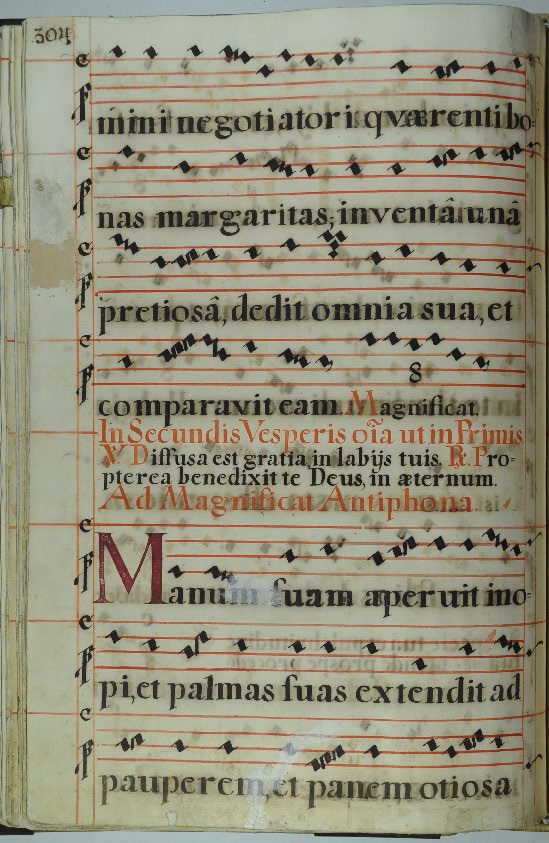 304
mini negotiatori quærenti bo-
nas margaritas, inventâ unâ
pretiosâ, dedit omnia sua, et
comparavit eam. Magnificat.
In Secundis Vesperis oĩa ut in Primis
℣. Diffusa est gratia in labijs tuis. ℟. Pro-
pterea benedixit te Deus, in æternum.
Ad Magnificat Antiphona.
Manum suam aperuit ino-
pi, et palmas suas extendit ad
pauperem, et panem otiosa